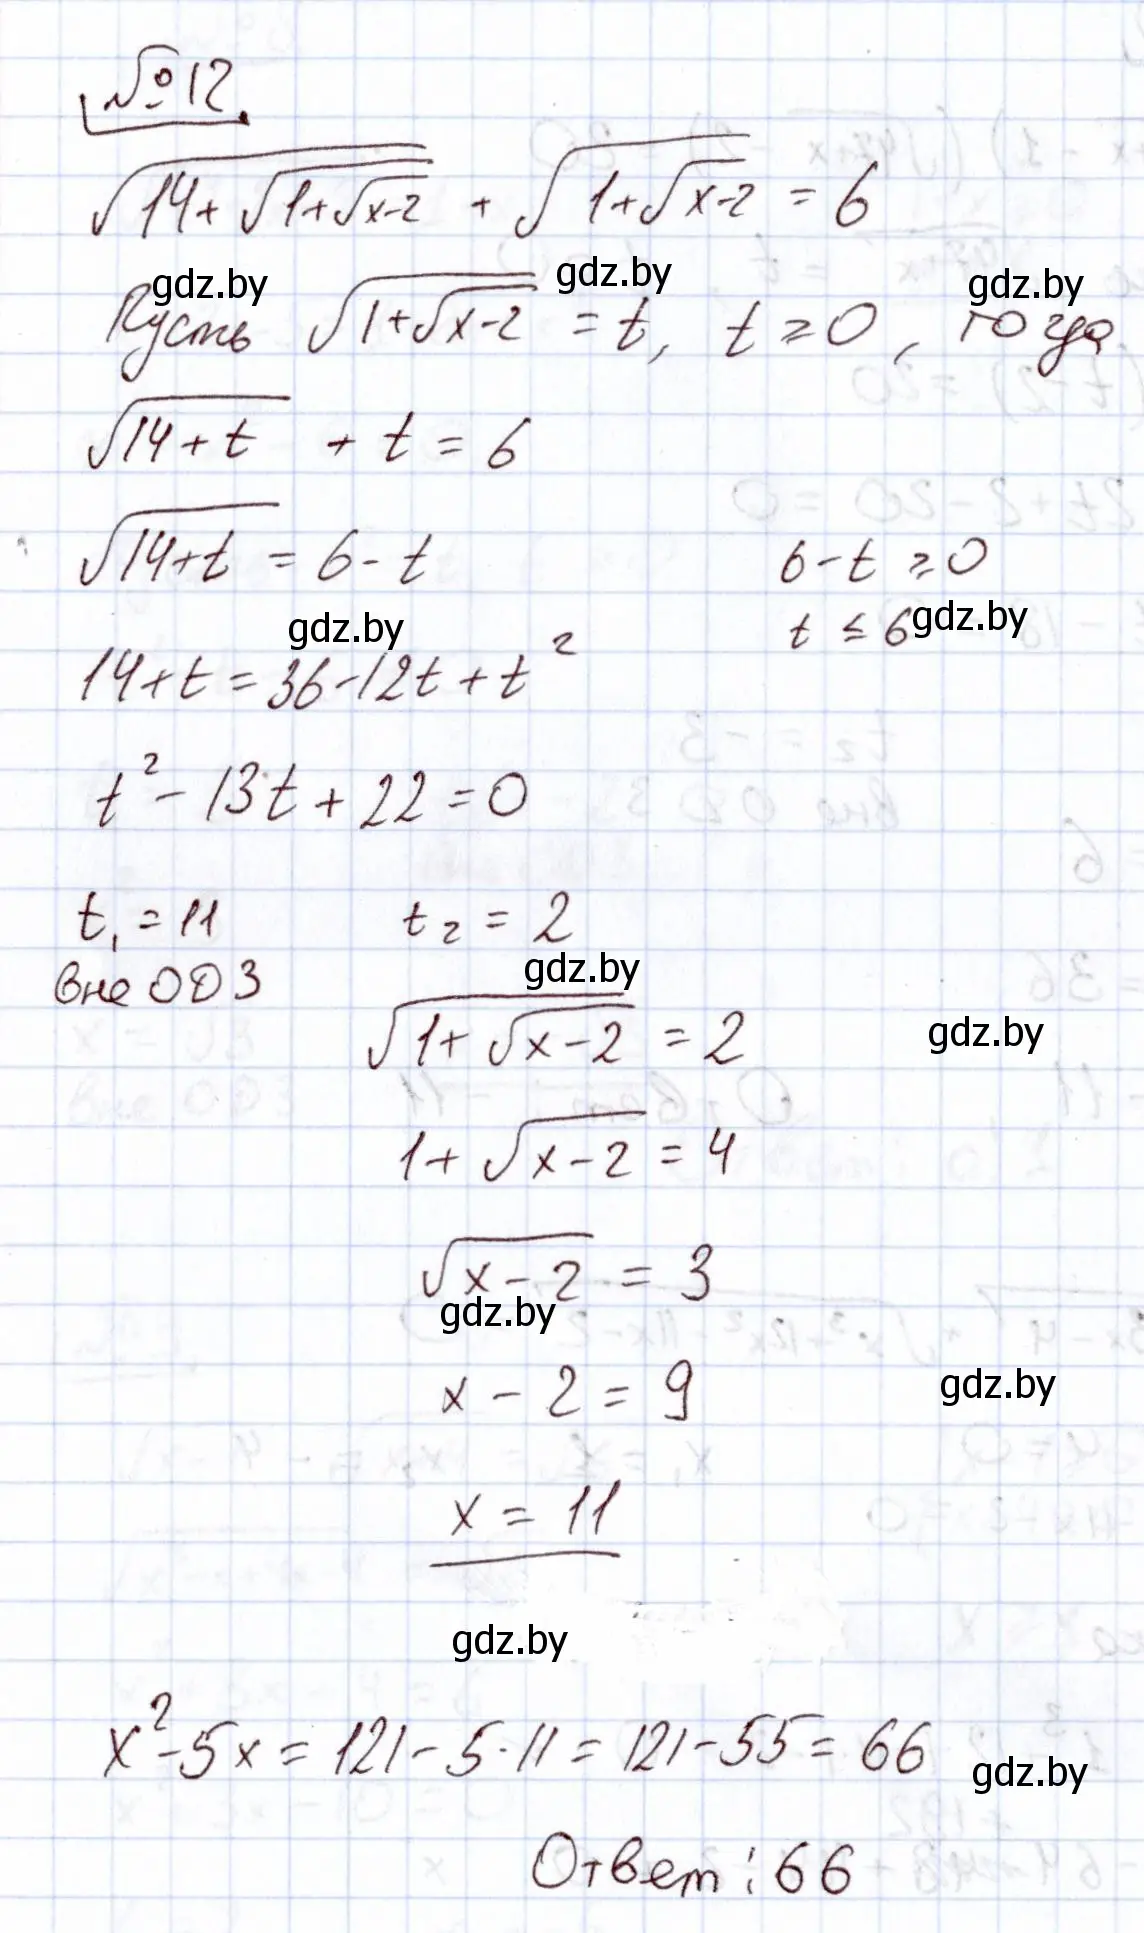 №12
√(14+√(1+√(x-2))) + √(1+√(x-2)) = 6
gdz.by gdz.by gdz.by
Пусть √(1+√(x-2)) = t, t ≥ 0, тогда
√(14+t) + t = 6
√(14+t) = 6-t 6-t ≥ 0
gdz.by t ≤ 6 gdz.by
14+t = 36-12t+t²
t²-13t+22=0
t₁ = 11 t₂ = 2
вне ОДЗ gdz.by
√(1+√(x-2)) = 2 gdz.by
1+√(x-2) = 4
√(x-2) = 3
gdz.by
x-2 = 9 gdz.by
x = 11
gdz.by
x²-5x = 121-5·11 = 121-55 = 66
gdz.by
Ответ: 66